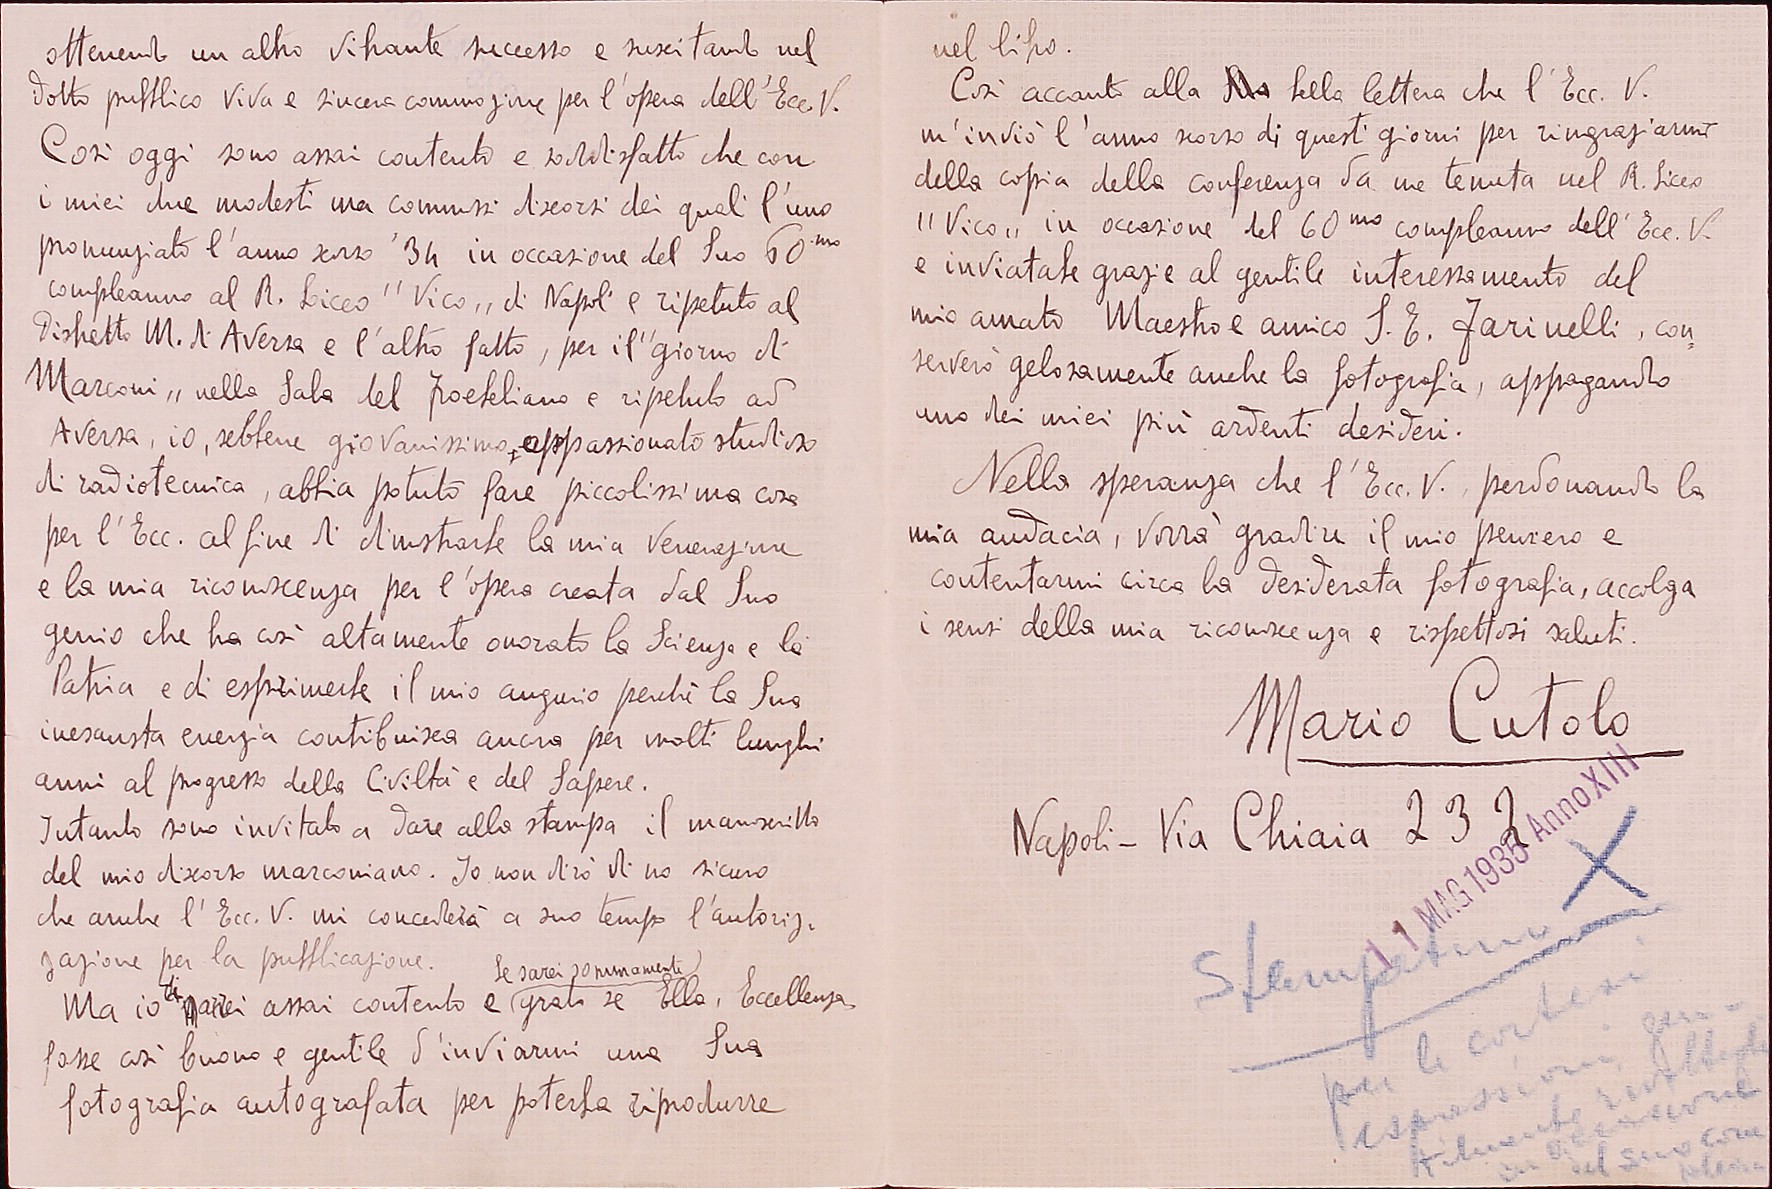 ottenendo un altro vibrante successo e suscitando nel
dotto pubblico viva e sincera commozione per l'opera dell'Ecc. V.
Così oggi sono assai contento e soddisfatto che con
i miei due modesti ma commossi discorsi dei quali l'uno
pronunziato l'anno scorso '34 in occasione del Suo 60mo
compleanno al R. Liceo "Vico„ di Napoli e ripetuto al
Distretto M. di Aversa e l'altro fatto, per il "giorno di
Marconi„ nella Sala del Froebeliano e ripetuto ad
Aversa, io, sebbene giovanissimo, appassionato studioso
di radiotecnica, abbia potuto fare piccolissima cosa
per l'Ecc. al fine di dimostrarle la mia venerazione
e la mia riconoscenza per l'opera creata dal Suo
genio che ha così altamente onorato la Scienza e la
Patria e di esprimerle il mio augurio perchè la Sua
inesausta energia contribuisca ancora per molti lunghi
anni al progresso della Civiltà e del Sapere.
Intanto sono invitato a dare alla stampa il manoscritto
del mio discorso marconiano. Io non dirò di no sicuro
che anche l'Ecc. V. mi concederà a suo tempo l'autoriz-
zazione per la pubblicazione.
Le sarei sommamente
Ma io assai contento e grato se Ella, Eccellenza
fosse così buono e gentile d'inviarmi una Sua
fotografia autografata per poterla riprodurre
nel libro.
Così accanto alla bella lettera che l'Ecc. V.
m'inviò l'anno scorso di questi giorni per ringraziarmi
della copia della conferenza da me tenuta nel R. Liceo
"Vico„ in occasione del 60mo compleanno dell'Ecc. V.
e inviatale grazie al gentile interessamento del
mio amato Maestro e amico S. E. Farinelli, con=
serverò gelosamente anche la fotografia, appagando
uno dei miei più ardenti desideri.
Nella speranza che l'Ecc. V., perdonando la
mia audacia, vorrà gradire il mio pensiero e
contentarmi circa la desiderata fotografia, accolga
i sensi della mia riconoscenza e rispettosi saluti.
Mario Cutolo
Napoli - Via Chiaia 232
11 MAG 1935 Anno XIII
X
Stampatino
per le cortesi
espressioni gen-
tilmente rivoltegli
in occasione
del suo com
pleanno